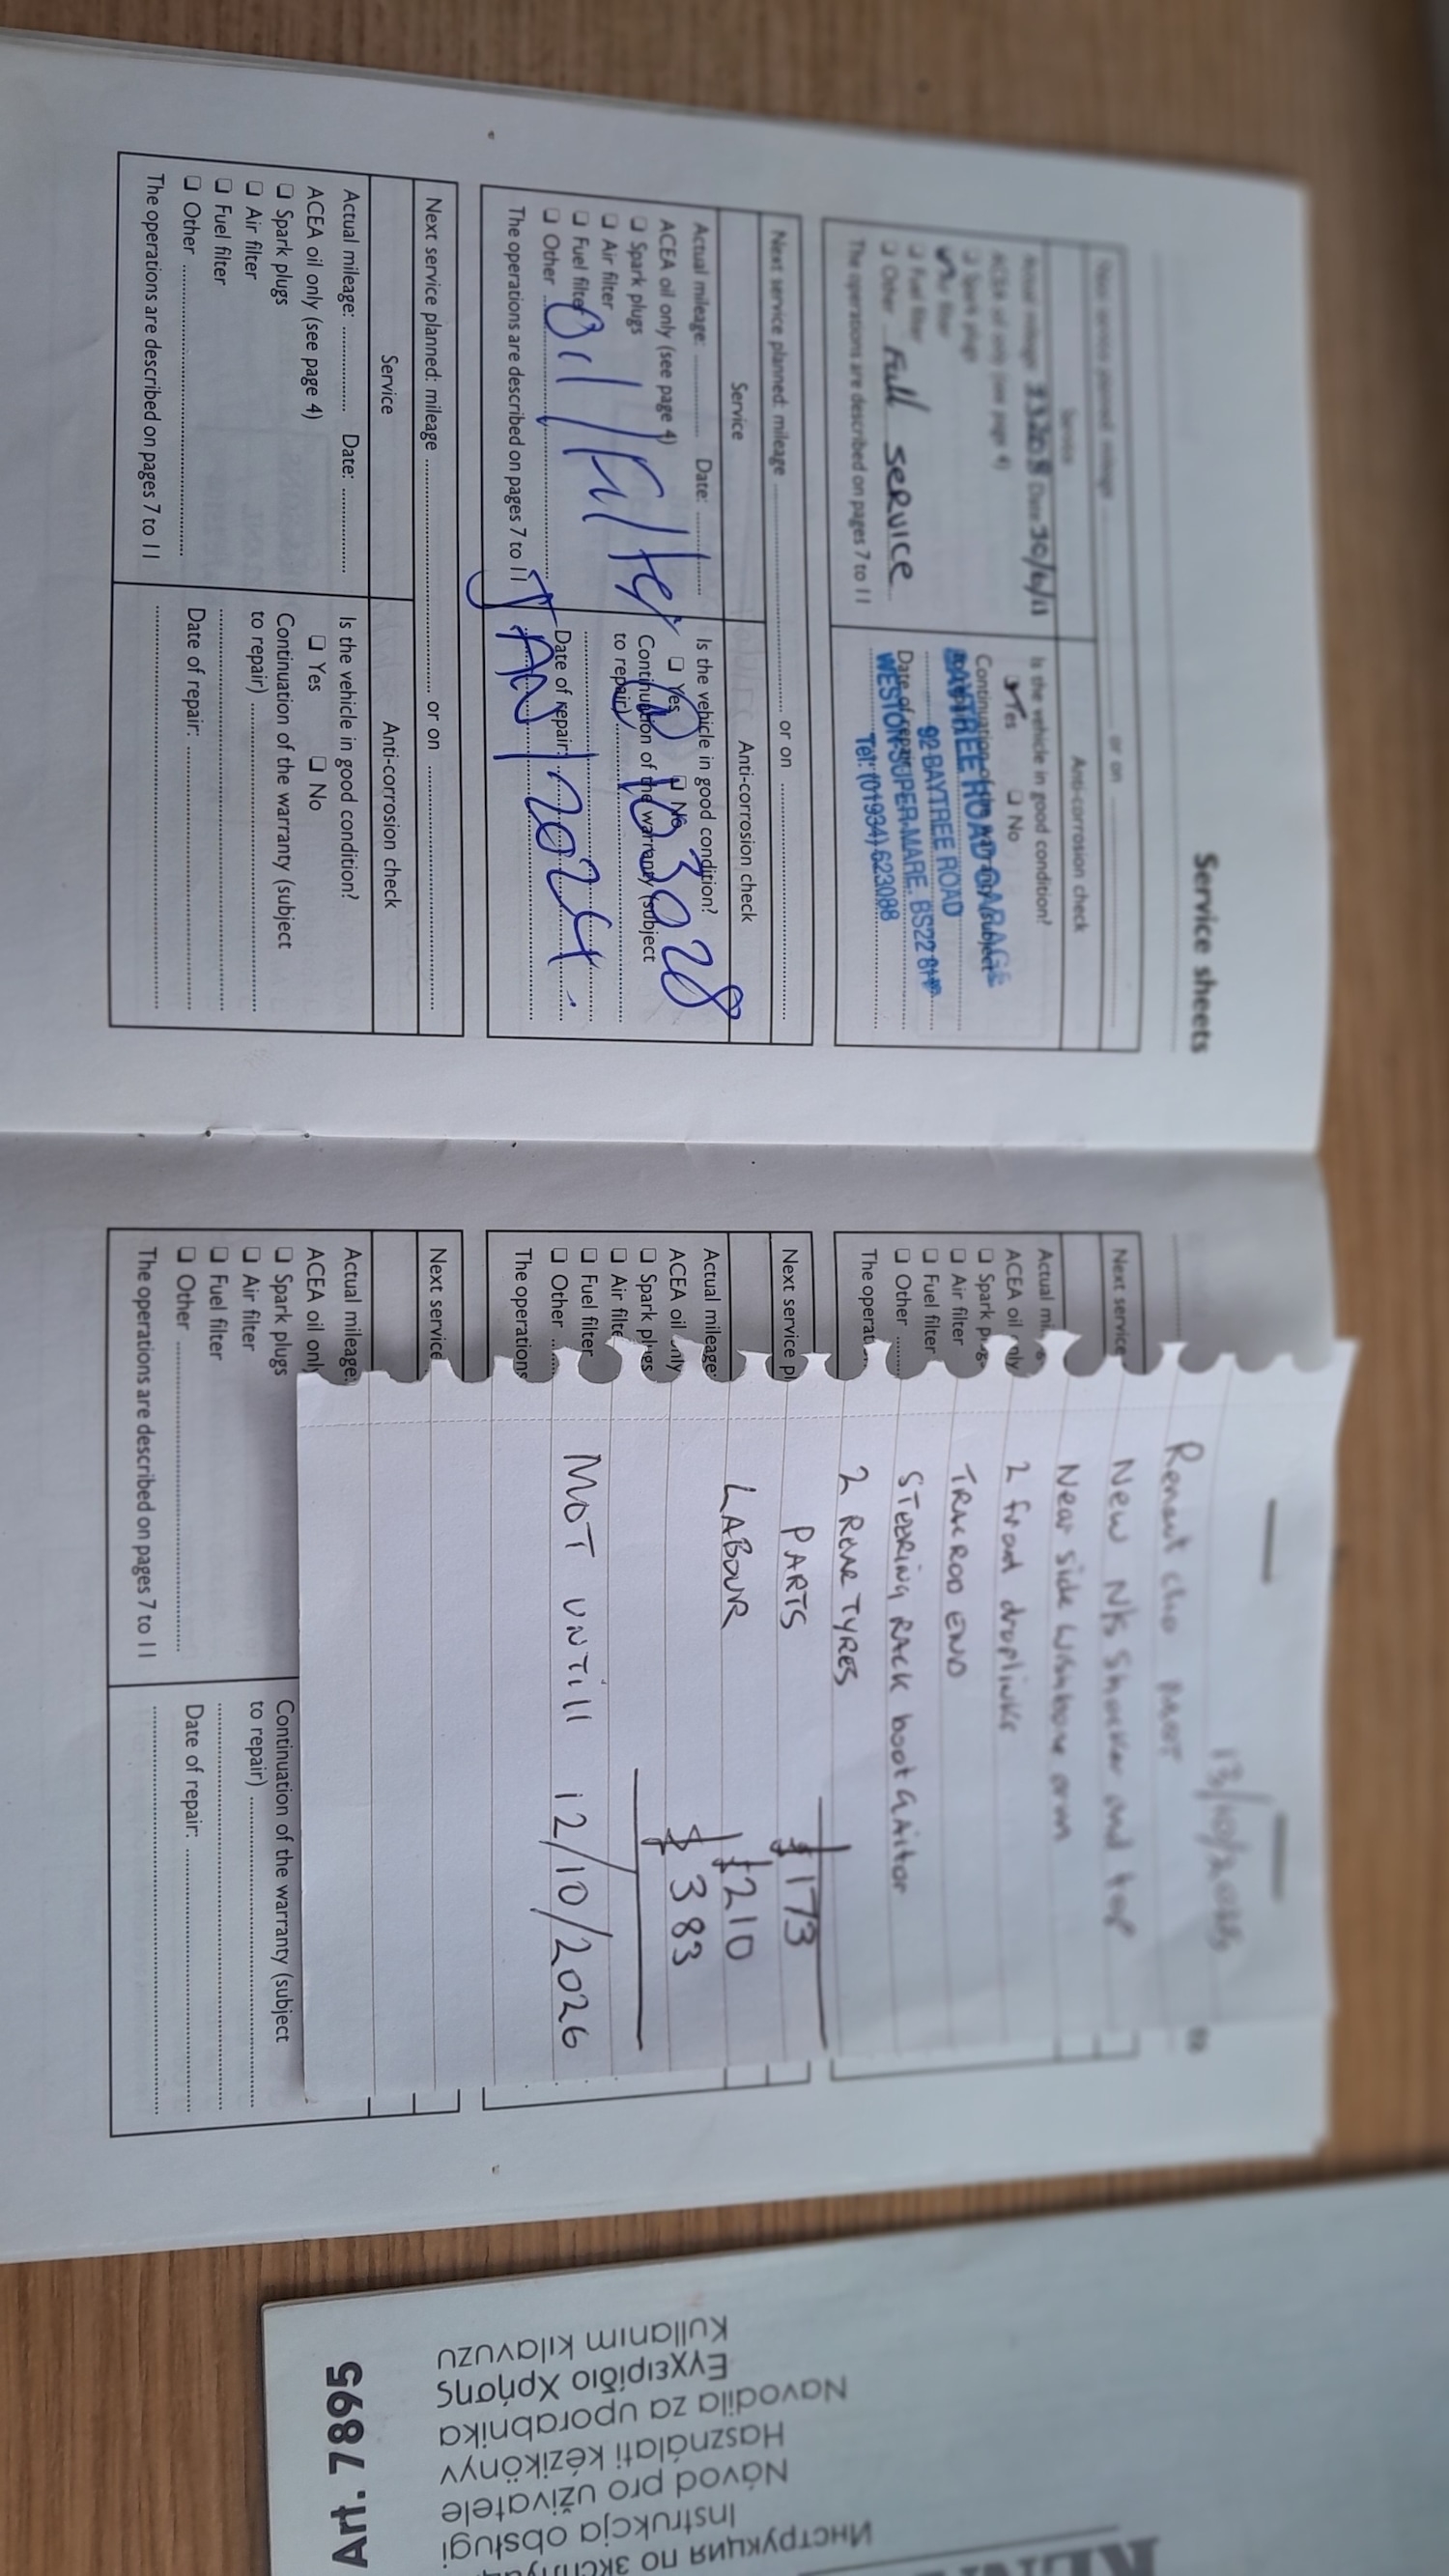 Service sheets
Next service planned: mileage .......... or on ..........
Service
Anti-corrosion check
Actual mileage: Date: 30/6/11
ACEA oil only (see page 4)
❑ Spark plugs
Air filter
❑ Fuel filter
❑ Other Full service
The operations are described on pages 7 to 11
Is the vehicle in good condition?
Yes ❑ No
Continuation of the warranty (subject
BAYTREE ROAD GARAGE
92 BAYTREE ROAD
Date of repair:
WESTON-SUPER-MARE. BS22 8HP
Tel: (01934) 623088
Next service planned: mileage .......... or on ..........
Service
Anti-corrosion check
Actual mileage: .......... Date: ..........
ACEA oil only (see page 4)
❑ Spark plugs
❑ Air filter
❑ Fuel filter
❑ Other ..........
The operations are described on pages 7 to 11
Is the vehicle in good condition?
❑ Yes ❑ No
Continuation of the warranty (subject
to repair) ..........
Date of repair: ..........
Oil / Filter
103928
JAN / 2024.
Next service planned: mileage .......... or on ..........
Service
Anti-corrosion check
Actual mileage: .......... Date: ..........
ACEA oil only (see page 4)
❑ Spark plugs
❑ Air filter
❑ Fuel filter
❑ Other ..........
The operations are described on pages 7 to 11
Is the vehicle in good condition?
❑ Yes ❑ No
Continuation of the warranty (subject
to repair) ..........
Date of repair: ..........
Next service
Actual mi
ACEA oil only
❑ Spark plugs
❑ Air filter
❑ Fuel filter
❑ Other ..........
The operat
Next service pl
Actual mileage:
ACEA oil only
❑ Spark plugs
❑ Air filte
❑ Fuel filter
❑ Other ..........
The operations
Next service
Actual mileage:
ACEA oil only
❑ Spark plugs
❑ Air filter
❑ Fuel filter
❑ Other ..........
The operations are described on pages 7 to 11
Continuation of the warranty (subject
to repair) ..........
Date of repair: ..........
13/10/2025
clio MOT
New NKs Shocker and top
Near side wishbone arm
2 front droplinks
TRACK ROD END
STEERING RACK boot GAITOR
2 REAR TYRES
PARTS £173
LABOUR £210
£383
MOT UNTILL 12/10/2026
Art. 7895
Инструкция по
Instrukcja obsługi
Návod pro uživatele
Használati kézikönyv
Navodila za uporabnika
Εγχειρίδιο Χρήσης
Kullanım kılavuzu